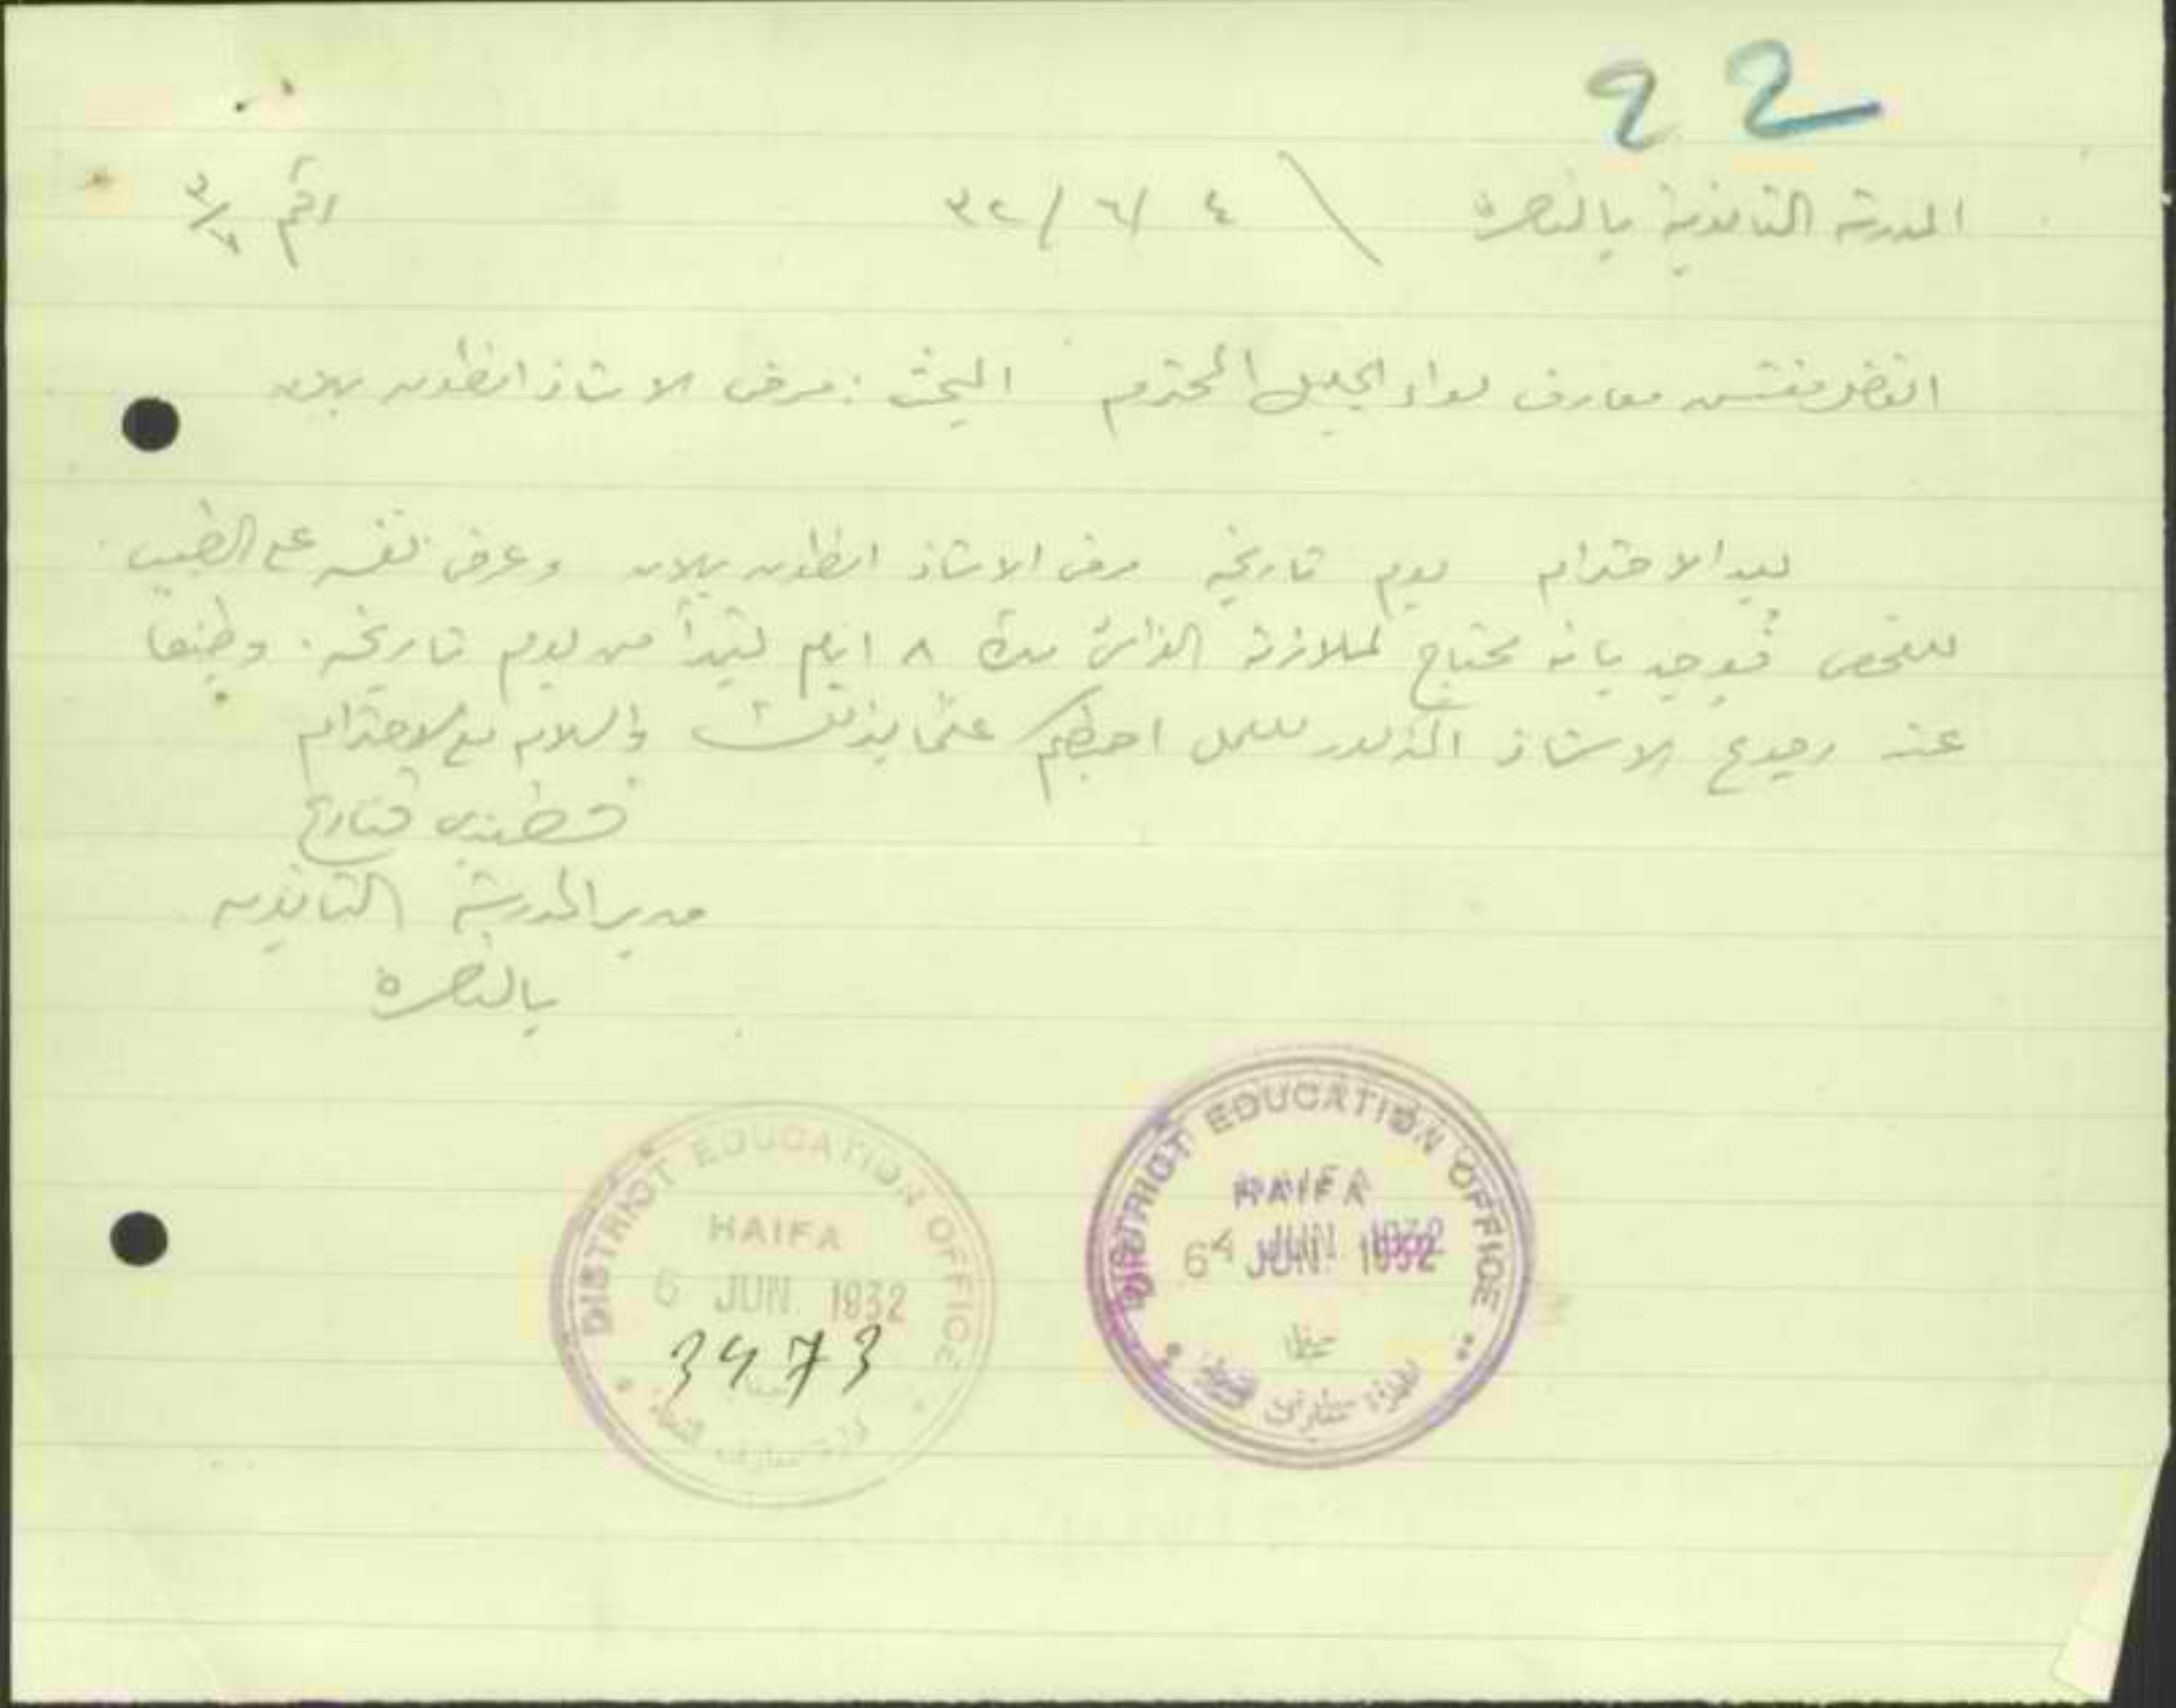 22
المدرسة الثانوية بالناصرة ٤ /٦ /٣٢
مفتش معارف لواء الجليل المحترم البحث : مرض الاستاذ انطون بلان
بعد الاحترام يوم تاريخه مرض الاستاذ انطون بلان وعرض نفسه على الطبيب
للفحص فوجد بانه محتاج لملازمة الفراش مدة ٨ ايام تبتدأ من يوم تاريخه .
عند رجوع الاستاذ المذكور للعمل احيطكم علماً بذلك والسلام مع الاحترام
مدير المدرسة الثانوية
بالناصرة
DISTRICT EDUCATION OFFICE
HAIFA
6 JUN. 1932
3473
DISTRICT EDUCATION OFFICE
HAIFA
JUN. 1932